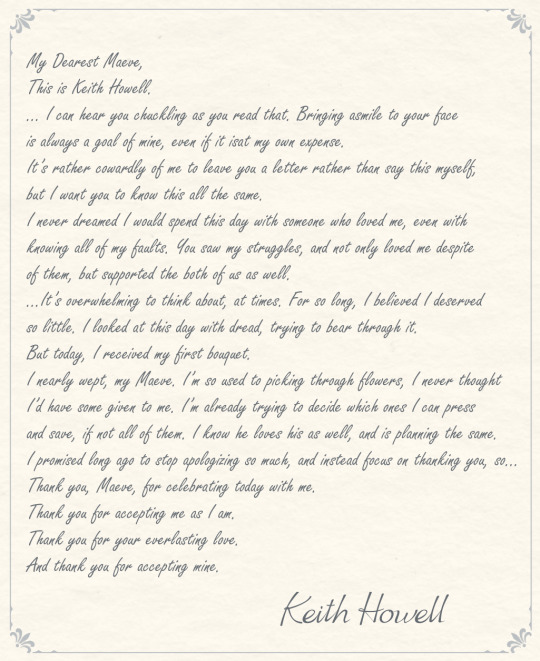 My Dearest Maeve,
This is Keith Howell.
... I can hear you chuckling as you read that. Bringing asmile to your face
is always a goal of mine, even if it isat my own expense.
It's rather cowardly of me to leave you a letter rather than say this myself,
but I want you to know this all the same.
I never dreamed I would spend this day with someone who loved me, even with
knowing all of my faults. You saw my struggles, and not only loved me despite
of them, but supported the both of us as well.
...It's overwhelming to think about, at times. For so long, I believed I deserved
so little. I looked at this day with dread, trying to bear through it.
But today, I received my first bouquet.
I nearly wept, my Maeve. I'm so used to picking through flowers, I never thought
I'd have some given to me. I'm already trying to decide which ones I can press
and save, if not all of them. I know he loves his as well, and is planning the same.
I promised long ago to stop apologizing so much, and instead focus on thanking you, so...
Thank you, Maeve, for celebrating today with me.
Thank you for accepting me as I am.
Thank you for your everlasting love.
And thank you for accepting mine.
Keith Howell